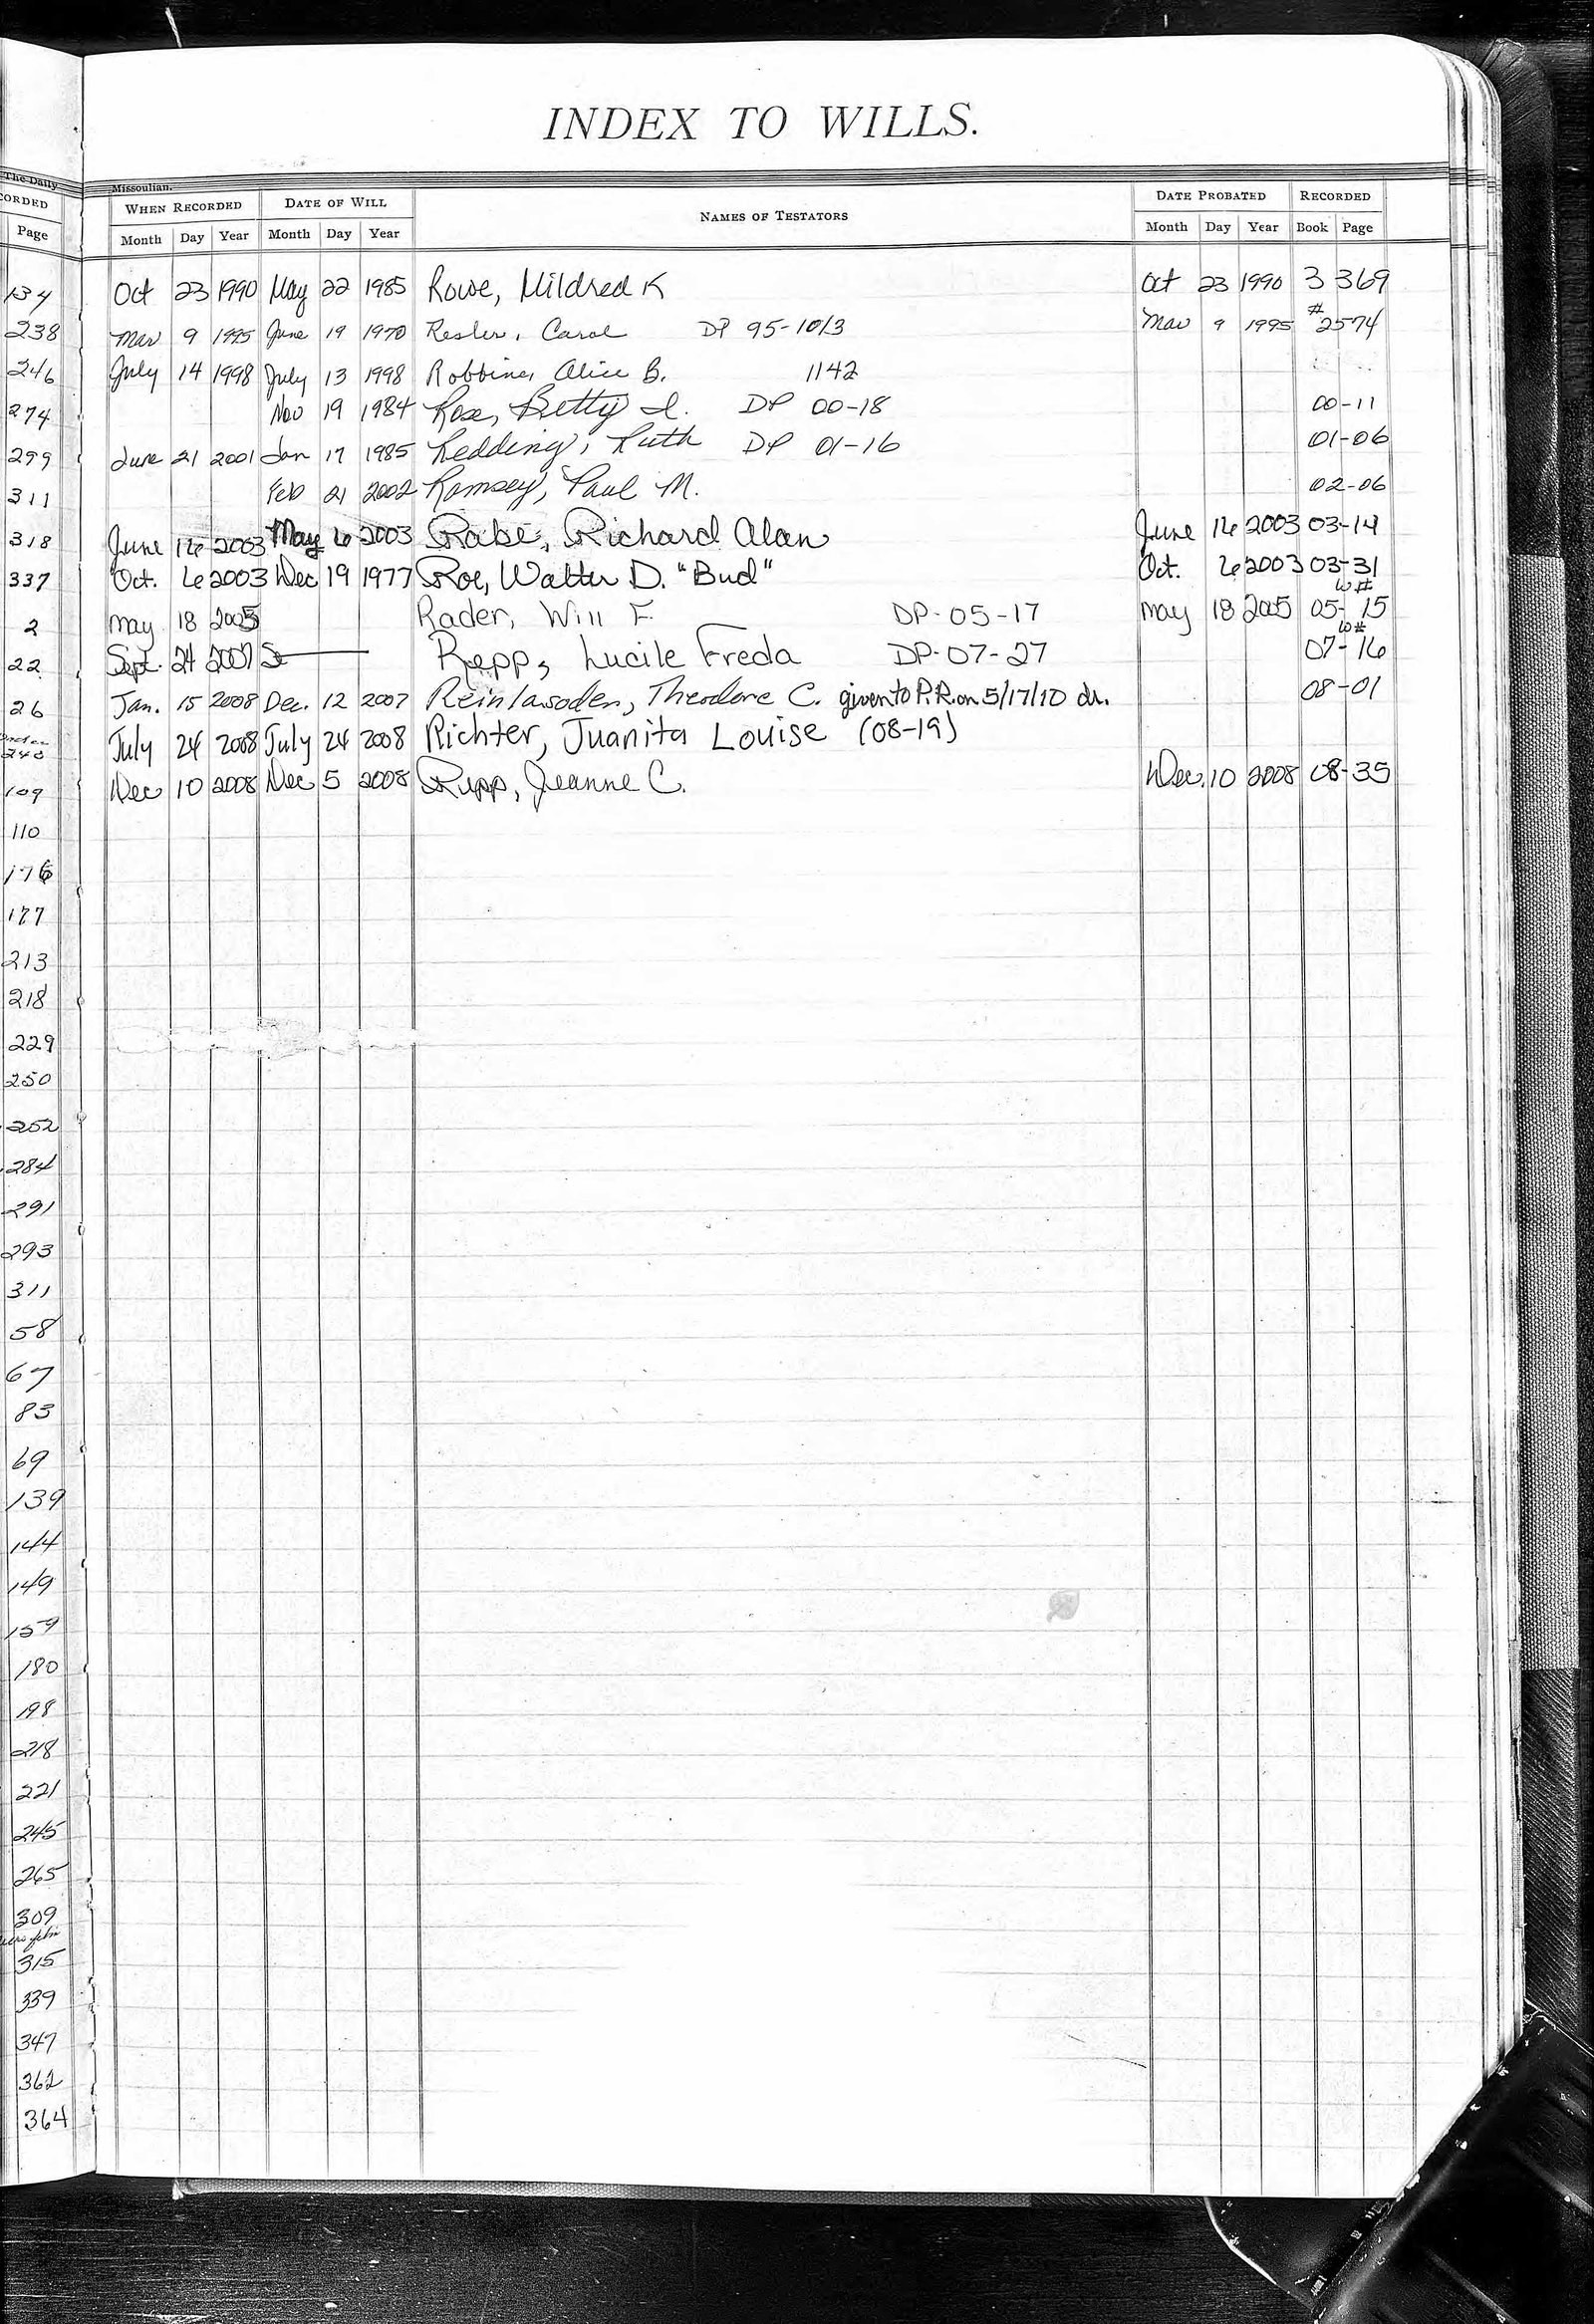 INDEX TO WILLS.
The Daily Missoulian.
CORDED WHEN RECORDED DATE OF WILL NAMES OF TESTATORS DATE PROBATED RECORDED
Page Month Day Year Month Day Year Month Day Year Book Page
134 Oct 23 1990 May 22 1985 Rowe, Mildred K Oct 23 1990 3 369
238 Mar 9 1995 June 19 1970 Resler, Carol DP 95-1013 Mar 9 1995 #2574
246 July 14 1998 July 13 1998 Robbins, Alice B. 1142
274 Nov 19 1984 Rose, Betty I. DP 00-18 00-11
299 June 21 2001 Jan 17 1985 Redding, Ruth DP 01-16 01-06
311 Feb 21 2002 Ramsey, Paul M. 02-06
318 June 16 2003 May 6 2003 Rabe, Richard Alan June 16 2003 03-14
337 Oct. 6 2003 Dec 19 1977 Roe, Walter D. "Bud" Oct. 6 2003 03-31
2 May 18 2005 Rader, Will F. DP-05-17 May 18 2005 W# 05-15
22 Sept. 24 2007 Se Repp, Lucile Freda DP-07-27 W# 07-16
26 Jan. 15 2008 Dec. 12 2007 Theodore C. given to P.R. on 5/17/10 dr. 08-01
240 July 24 2008 July 24 2008 Richter, Juanita Louise (08-19)
109 Dec 10 2008 Dec 5 2008 Rupp, Jeanne C. Dec. 10 2008 08-35
110
176
177
213
218
229
250
252
284
291
293
311
58
67
83
69
139
144
149
159
180
198
218
221
245
265
309
315
339
347
362
364